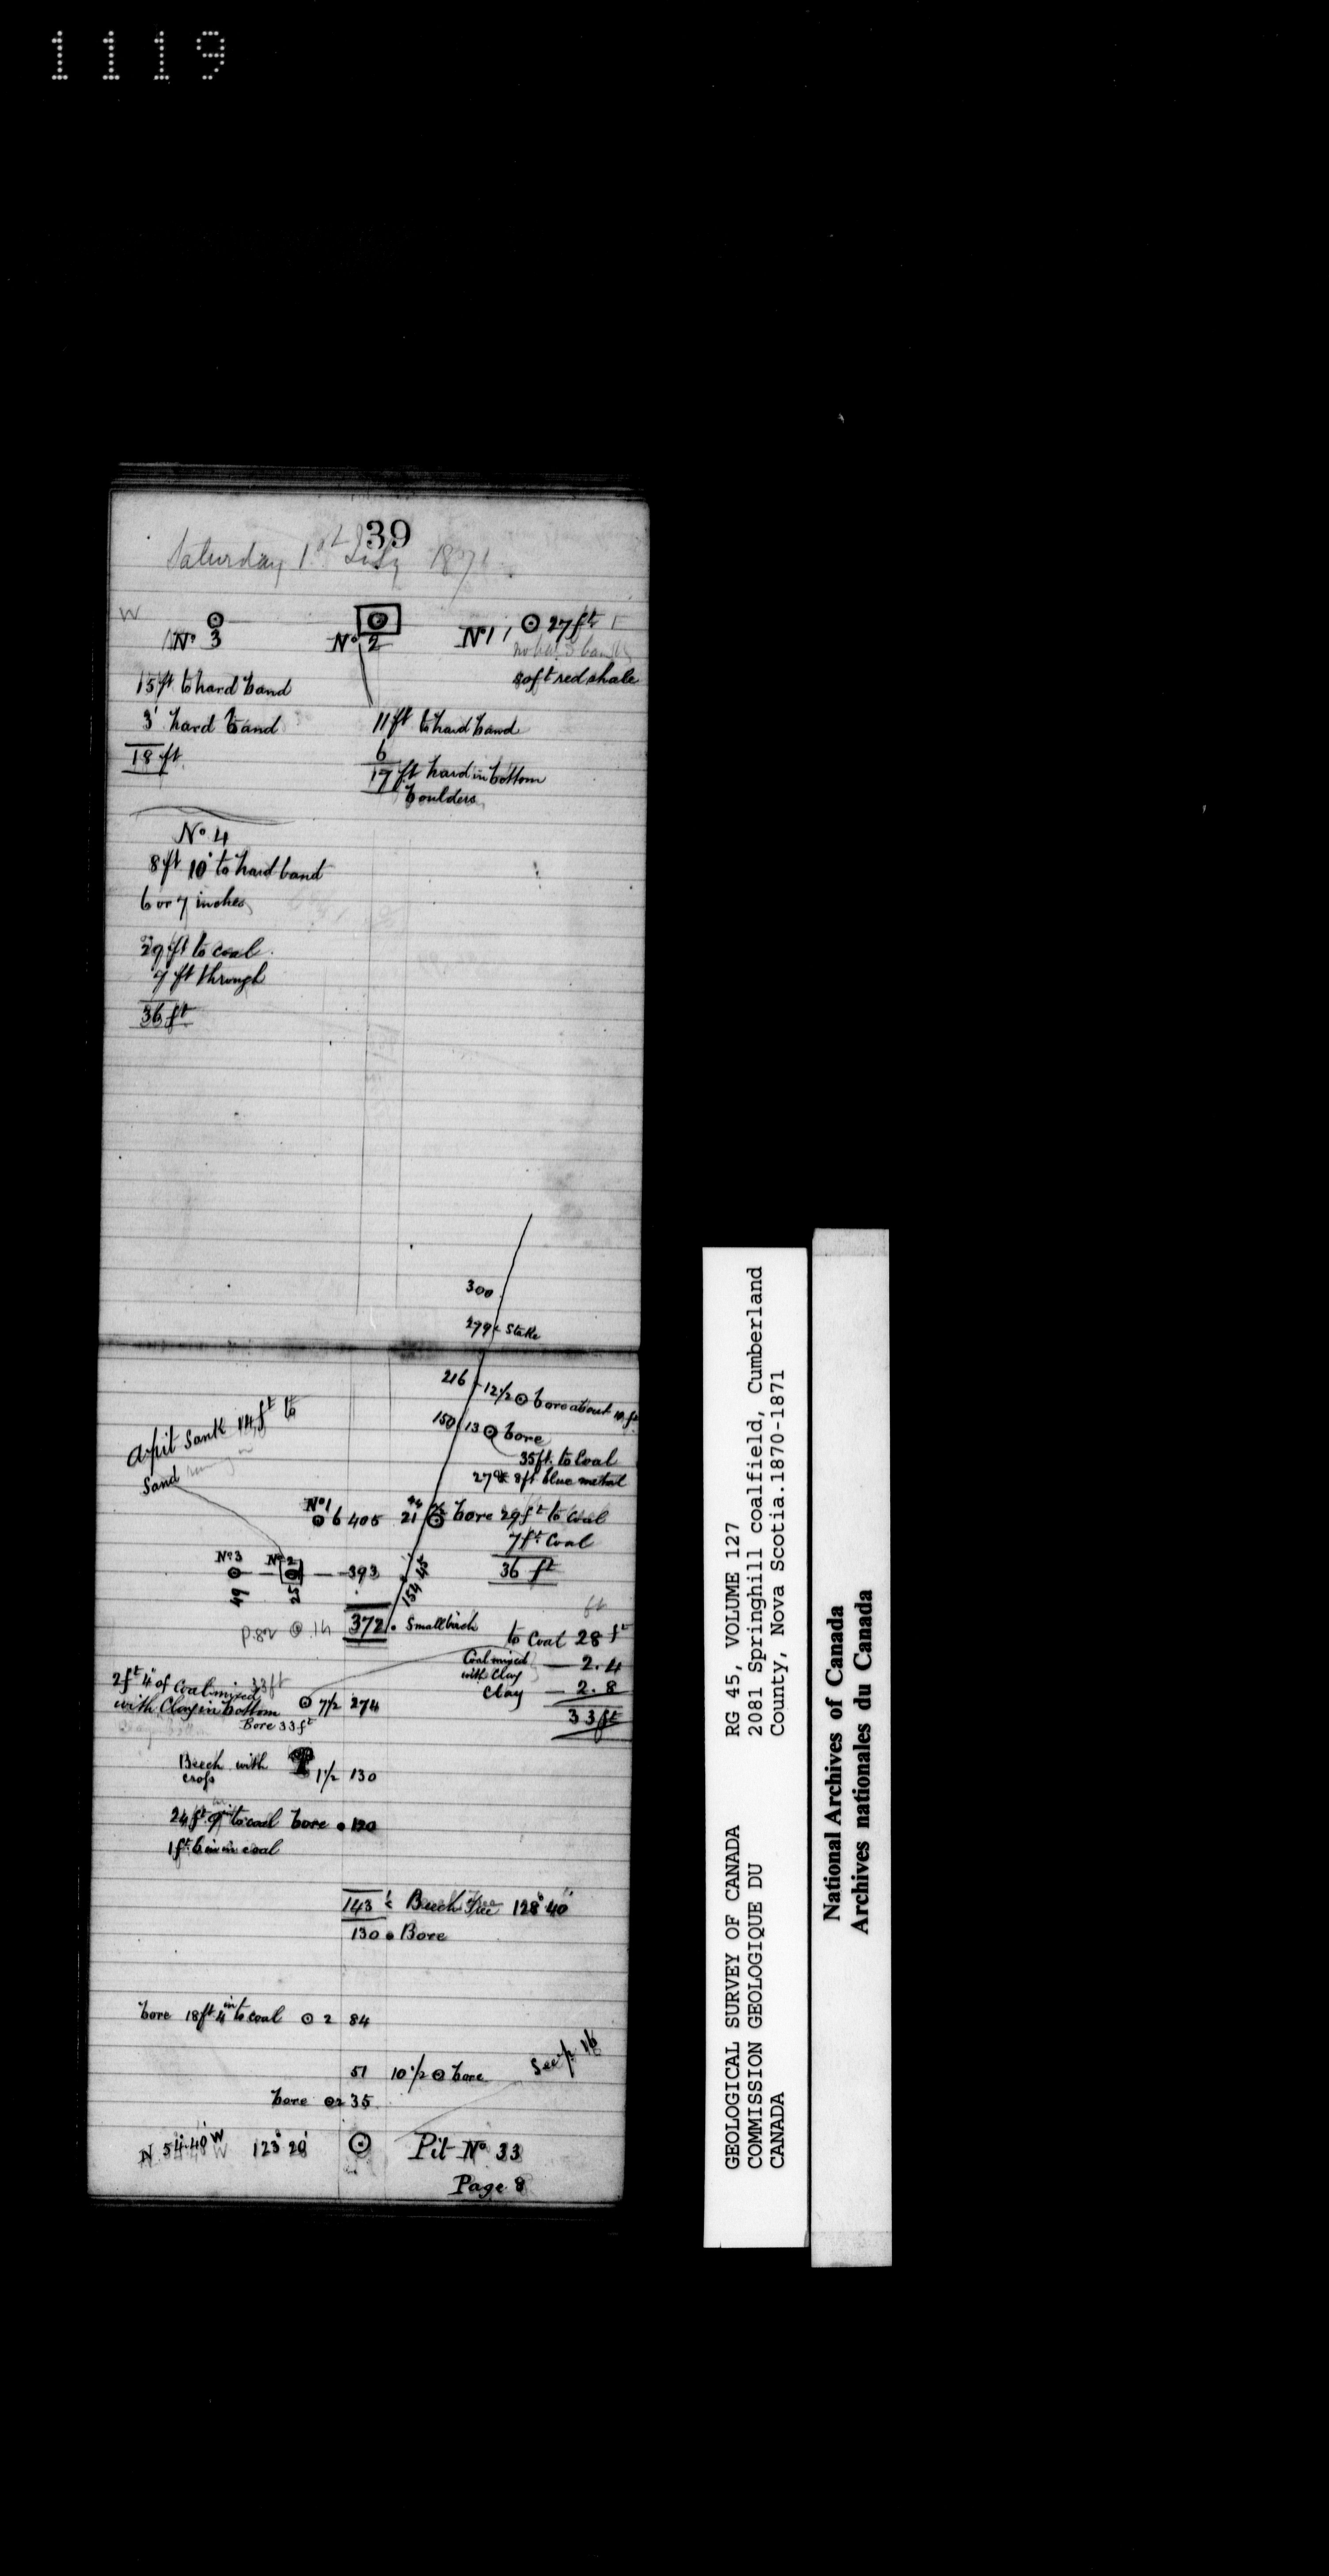 1119
39
Saturday 1st July 1871
W
No 3
No 2
No 1
27 ft
soft red shale
15 ft to hard band
3' hard band
18 ft
11 ft to hard band
6
17 ft hard in bottom
boulders
No 4
8 ft 10" to hard band
6 or 7 inches
29 ft to coal
7 ft through
36 ft
300
279 Stake
216 12 1/2 bore about
150 13 bore
35 ft. to Coal
8 ft blue metal
A pit Sank 14 ft to
Sand running in
No 1
6 405 21 bore 29 ft to Coal
7 ft Coal
36 ft
No 3 No 2 393
49 25 154 45
372 Small birch
p. 82
ft
to Coal 28 ft
Coal mixed
with Clay 2.4
Clay 2.8
33 ft
2 ft 4" of Coal mixed 33 ft
with Clay in bottom 7 1/2 274
Bore 33 ft
Beech with
cross 1 1/2 130
24 ft 9 in to coal bore 120
1 ft 6 in in coal
143 Beech Tree 128° 40'
130 Bore
bore 18 ft 4 in to coal 2 84
51 10 1/2 bore
See p. 16
bore 2 35
N 54° 40' W 123° 20' Pit No. 33
Page 8
GEOLOGICAL SURVEY OF CANADA
COMMISSION GEOLOGIQUE DU
CANADA
RG 45, VOLUME 127
2081 Springhill coalfield, Cumberland
County, Nova Scotia.1870-1871
National Archives of Canada
Archives nationales du Canada